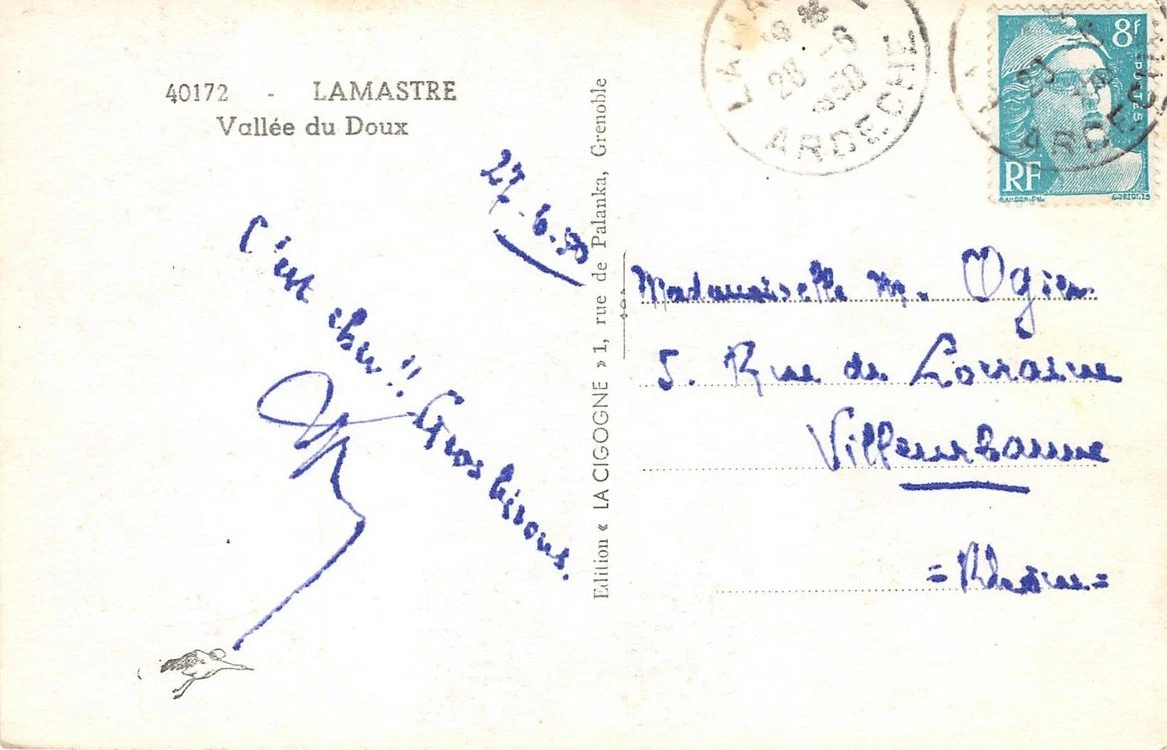 40172 - LAMASTRE
Vallée du Doux
27-6-50
C'est chu!! Gros bisous.
Edition « LA CIGOGNE » 1, rue de Palanka, Grenoble
28 -6
1950
ARDECHE
8f
POSTES
RF
ARDECHE
Mademoiselle M. Ogier
5. Rue de Lorraine
Villeurbanne
= Rhône =